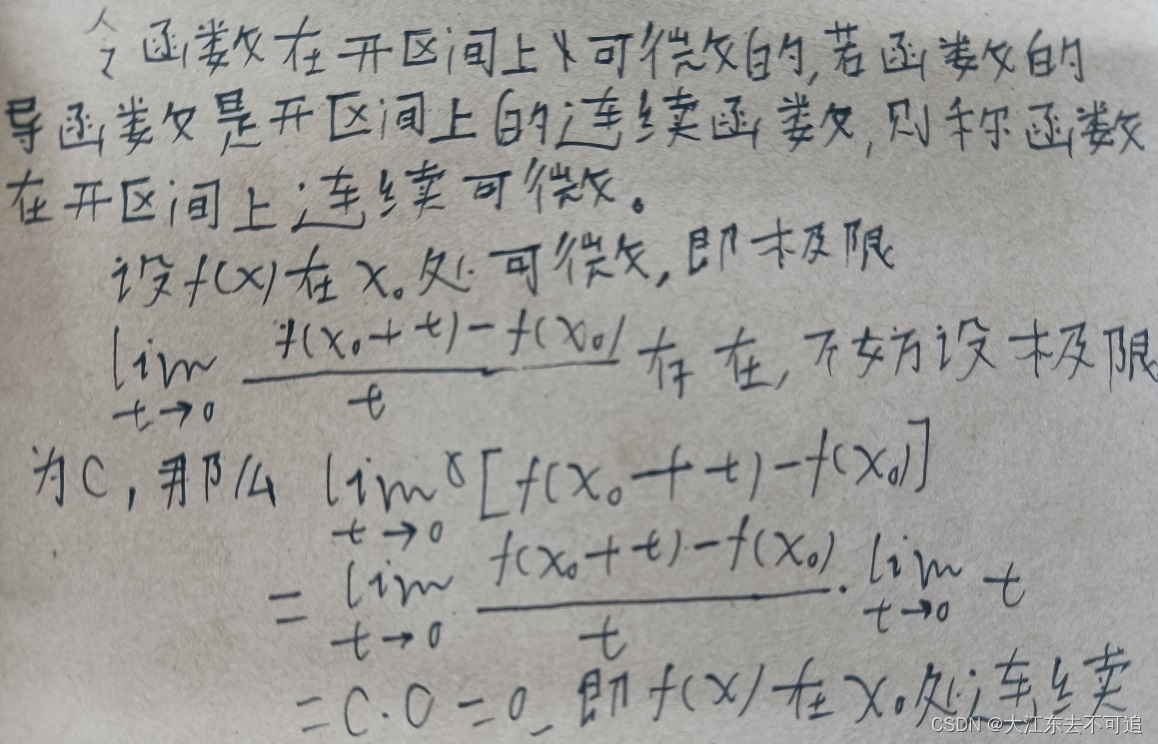 令函数在开区间上可微的,若函数的
导函数是开区间上的连续函数,则称函数
在开区间上连续可微。
设f(x)在x₀处可微,即极限
lim t→0 f(x₀+t)-f(x₀) / t 存在,不妨设极限
为C,那么 lim t→0 [f(x₀+t)-f(x₀)]
= lim t→0 f(x₀+t)-f(x₀) / t · lim t→0 t
=C·0=0 即f(x)在x₀处连续
CSDN @大江东去不可追